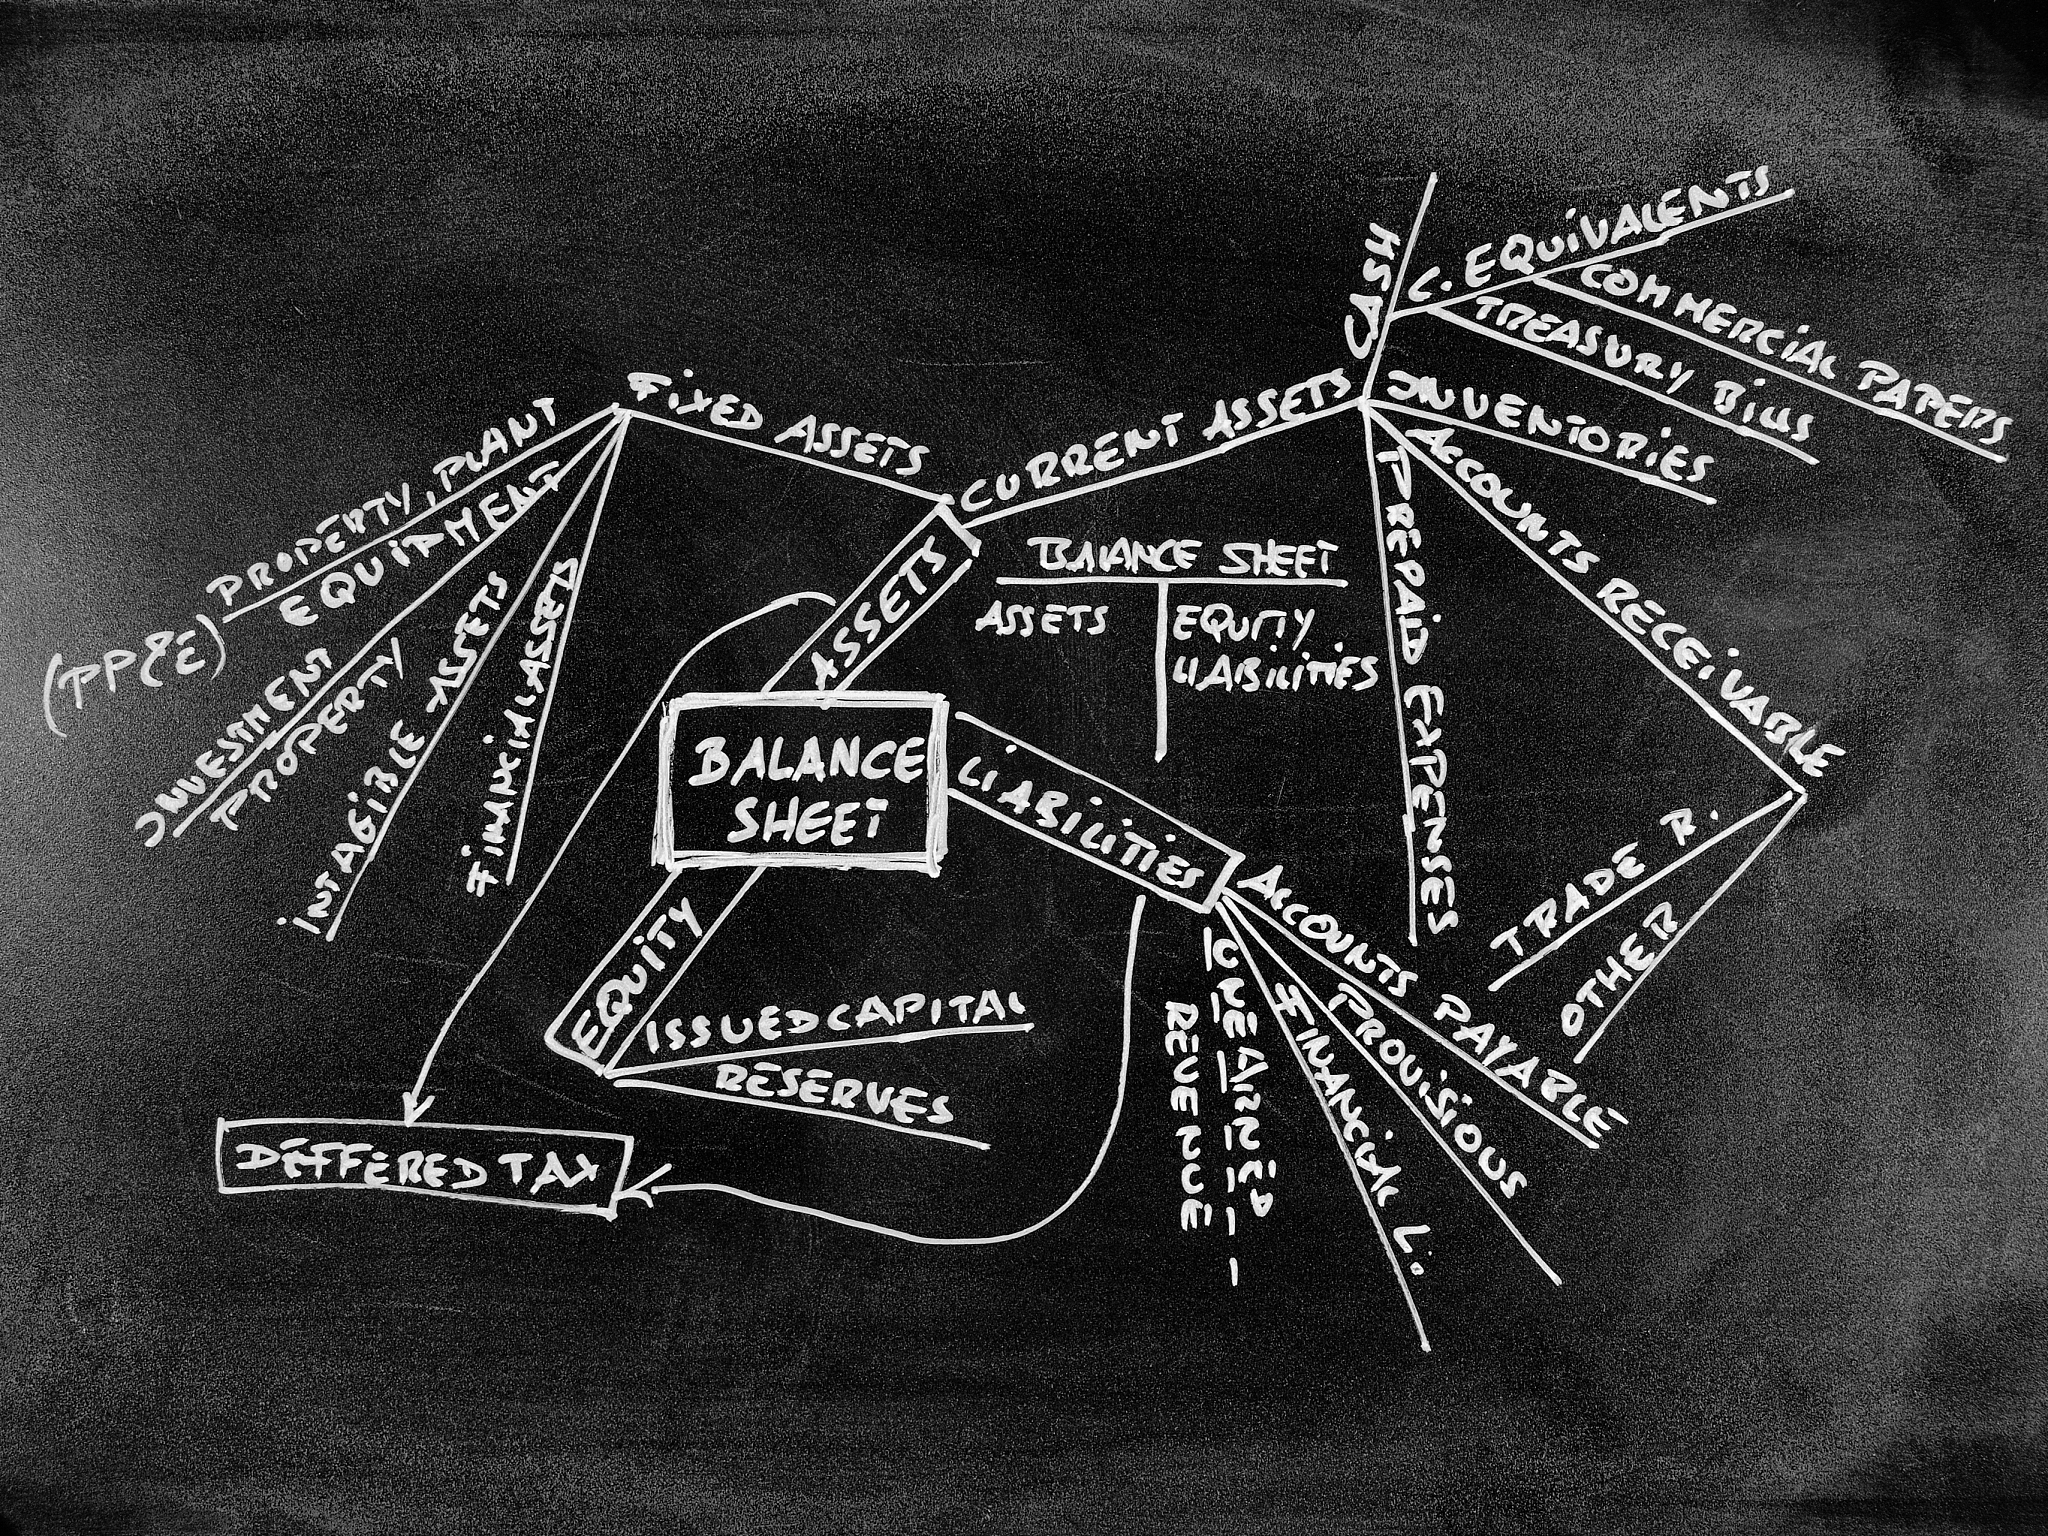 FIXED ASSETS
PROPERTY, PLANT
EQUIPMENT
(PP&E)
INVESTMENT
PROPERTY
INTAGIBLE ASSETS
FINANCIAL ASSETS
CURRENT ASSETS
CASH
C. EQUIVALENTS
COMMERCIAL PAPERS
TREASURY BILLS
INVENTORIES
ACCOUNTS RECEIVABLE
TRADE R.
OTHER
PREPAID EXPENSES
ASSETS
BALANCE SHEET
ASSETS
EQUITY
LIABILITIES
BALANCE
SHEET
LIABILITIES
ACCOUNTS PAYABLE
PROVISIOUS
FINANCIAL L.
UNEARNED
REVENUE
EQUITY
ISSUED CAPITAL
RESERVES
DEFFERED TAX